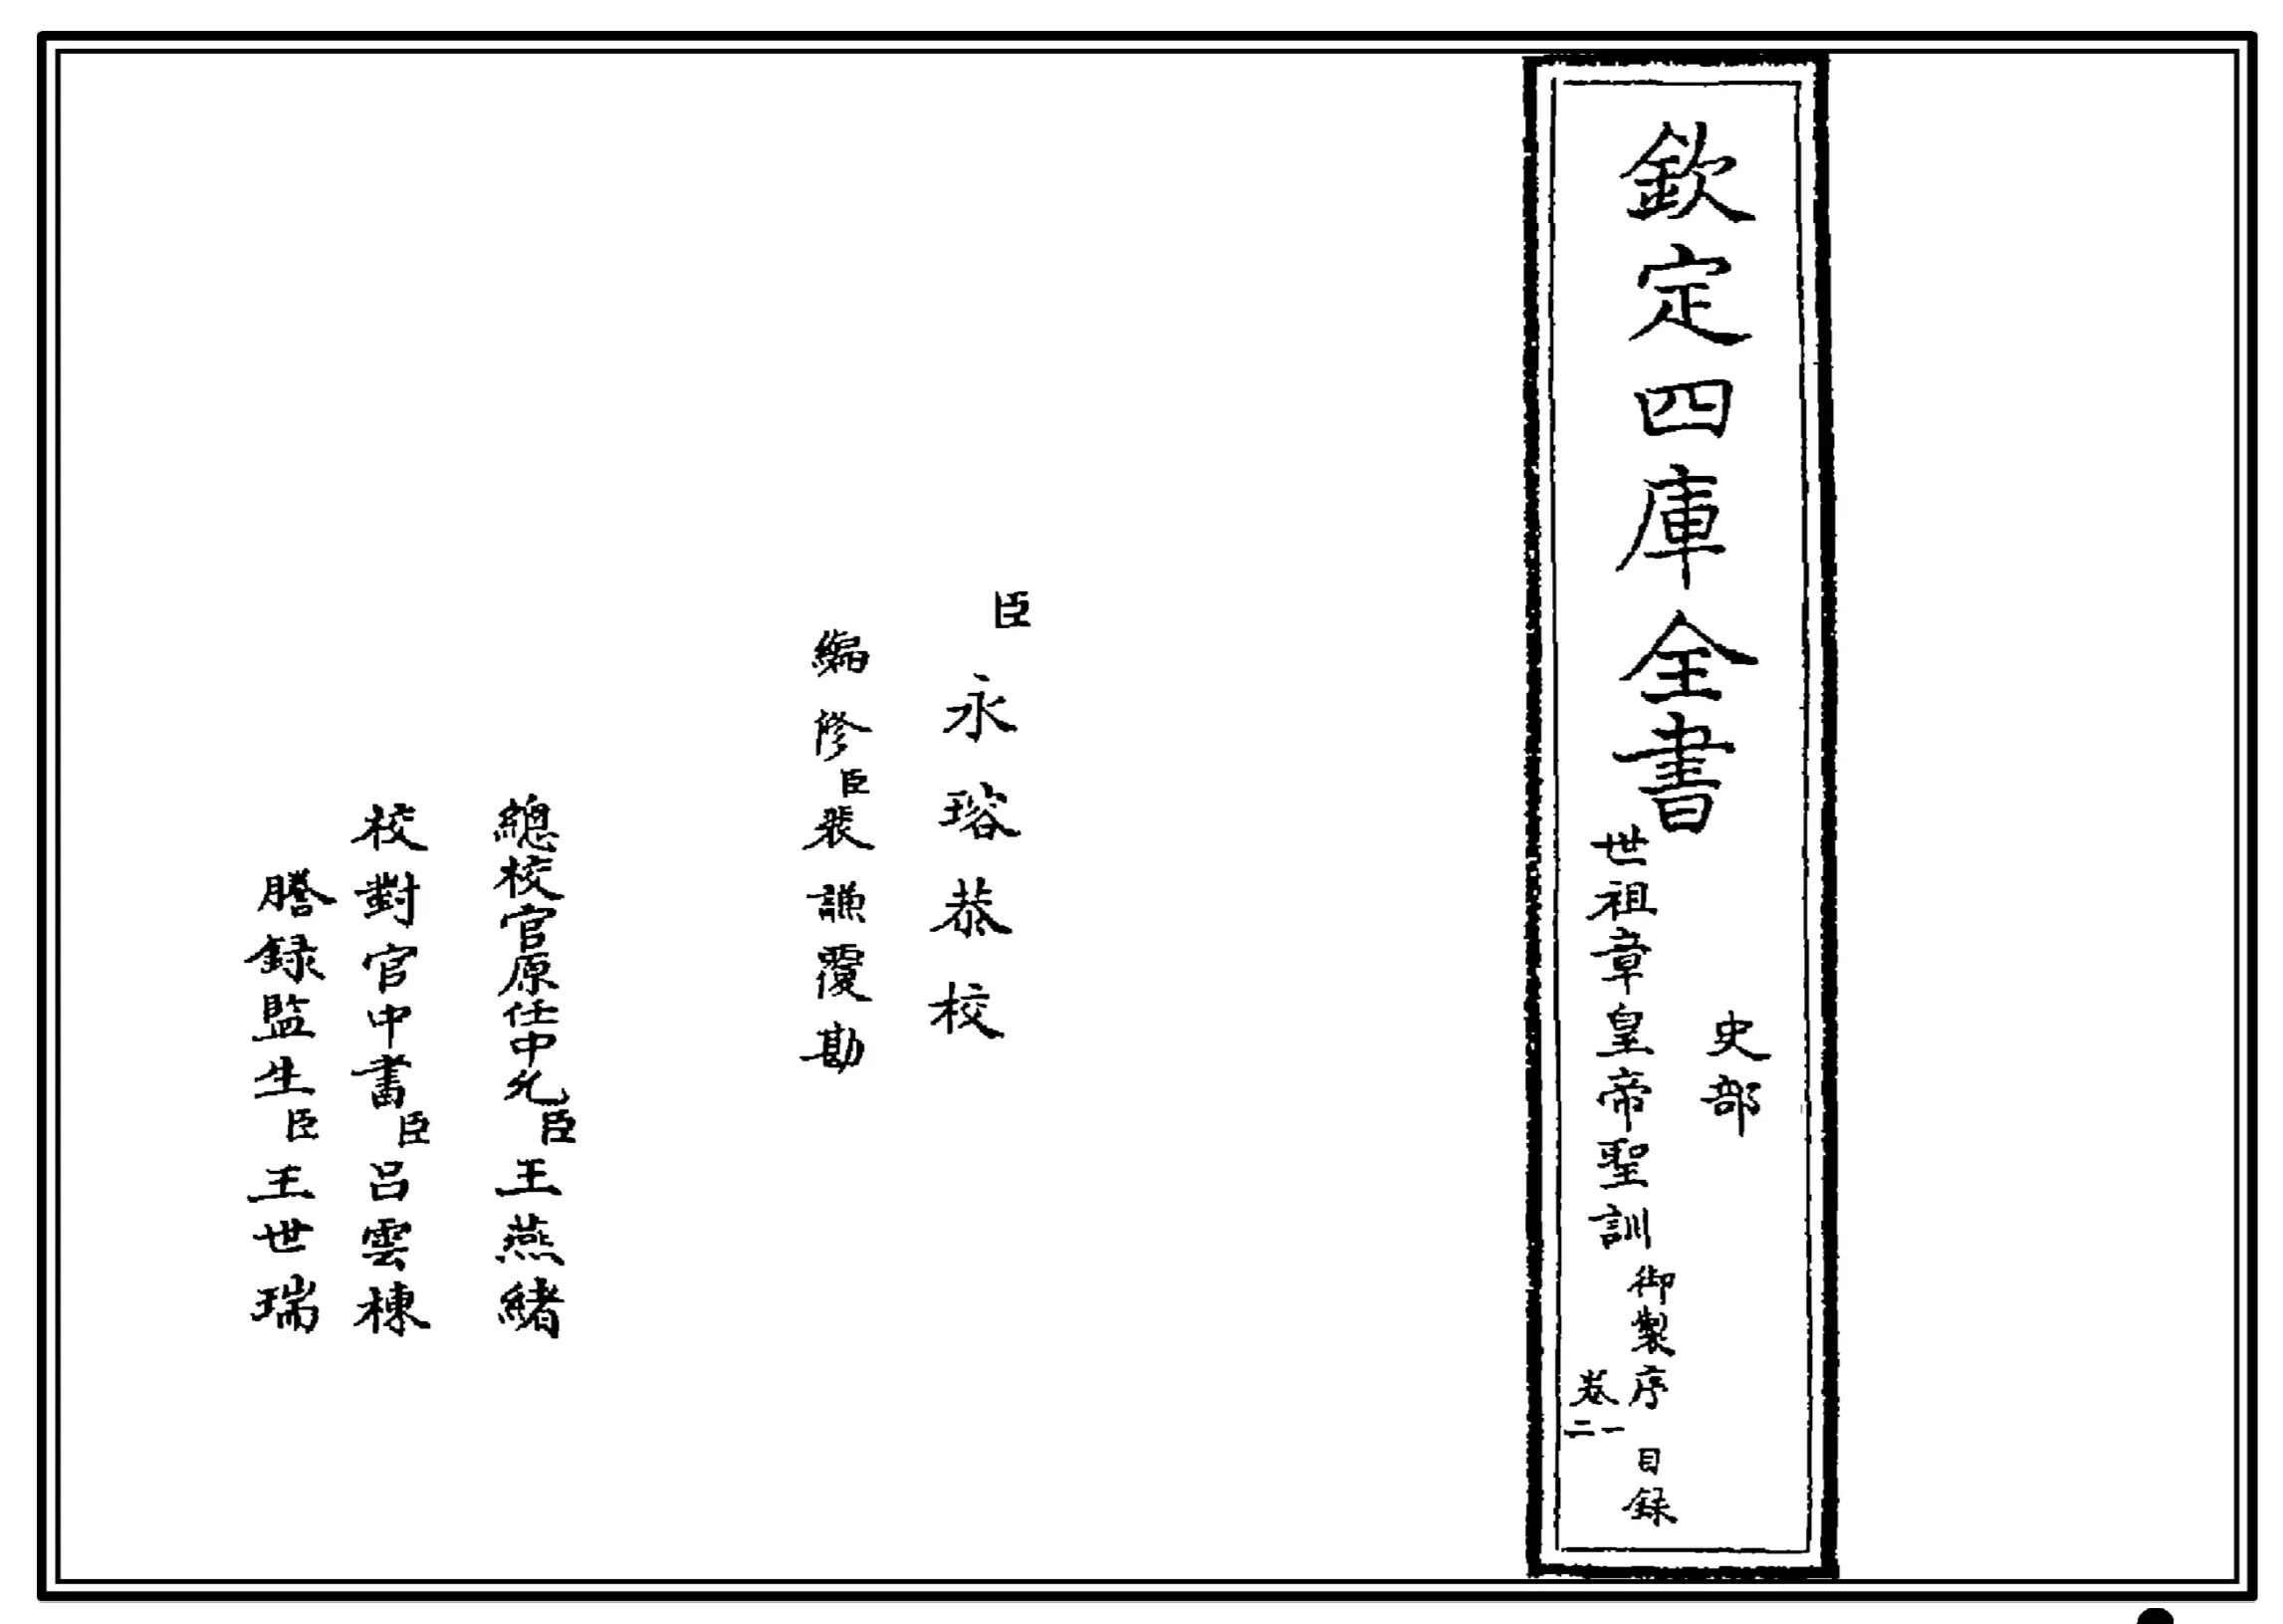 欽定四庫全書
史部
世祖章皇帝聖訓
御製序 目録
卷一
二
臣永瑢恭校
編修臣裴謙覆勘
總校官原任中允臣王燕緒
校對官中書臣呂雲棟
謄録監生臣王世瑞